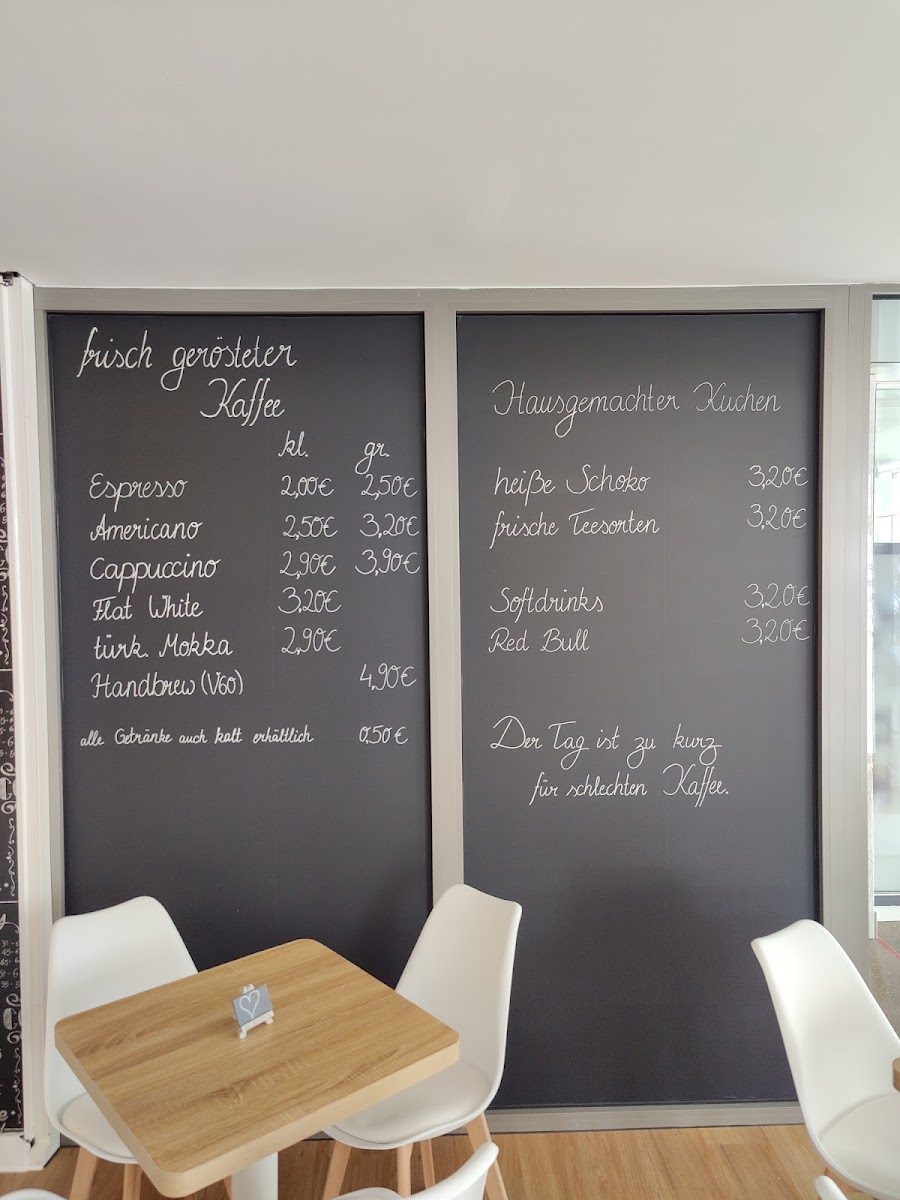 frisch gerösteter
Kaffee
kl. gr.
Espresso 2,00€ 2,50€
Americano 2,50€ 3,20€
Cappuccino 2,90€ 3,90€
Flat White 3,20€
türk. Mokka 2,90€
Handbrew (V60) 4,90€
alle Getränke auch kalt erhältlich 0,50€
Hausgemachter Kuchen
heiße Schoko 3,20€
frische Teesorten 3,20€
Softdrinks 3,20€
Red Bull 3,20€
Der Tag ist zu kurz
für schlechten Kaffee.